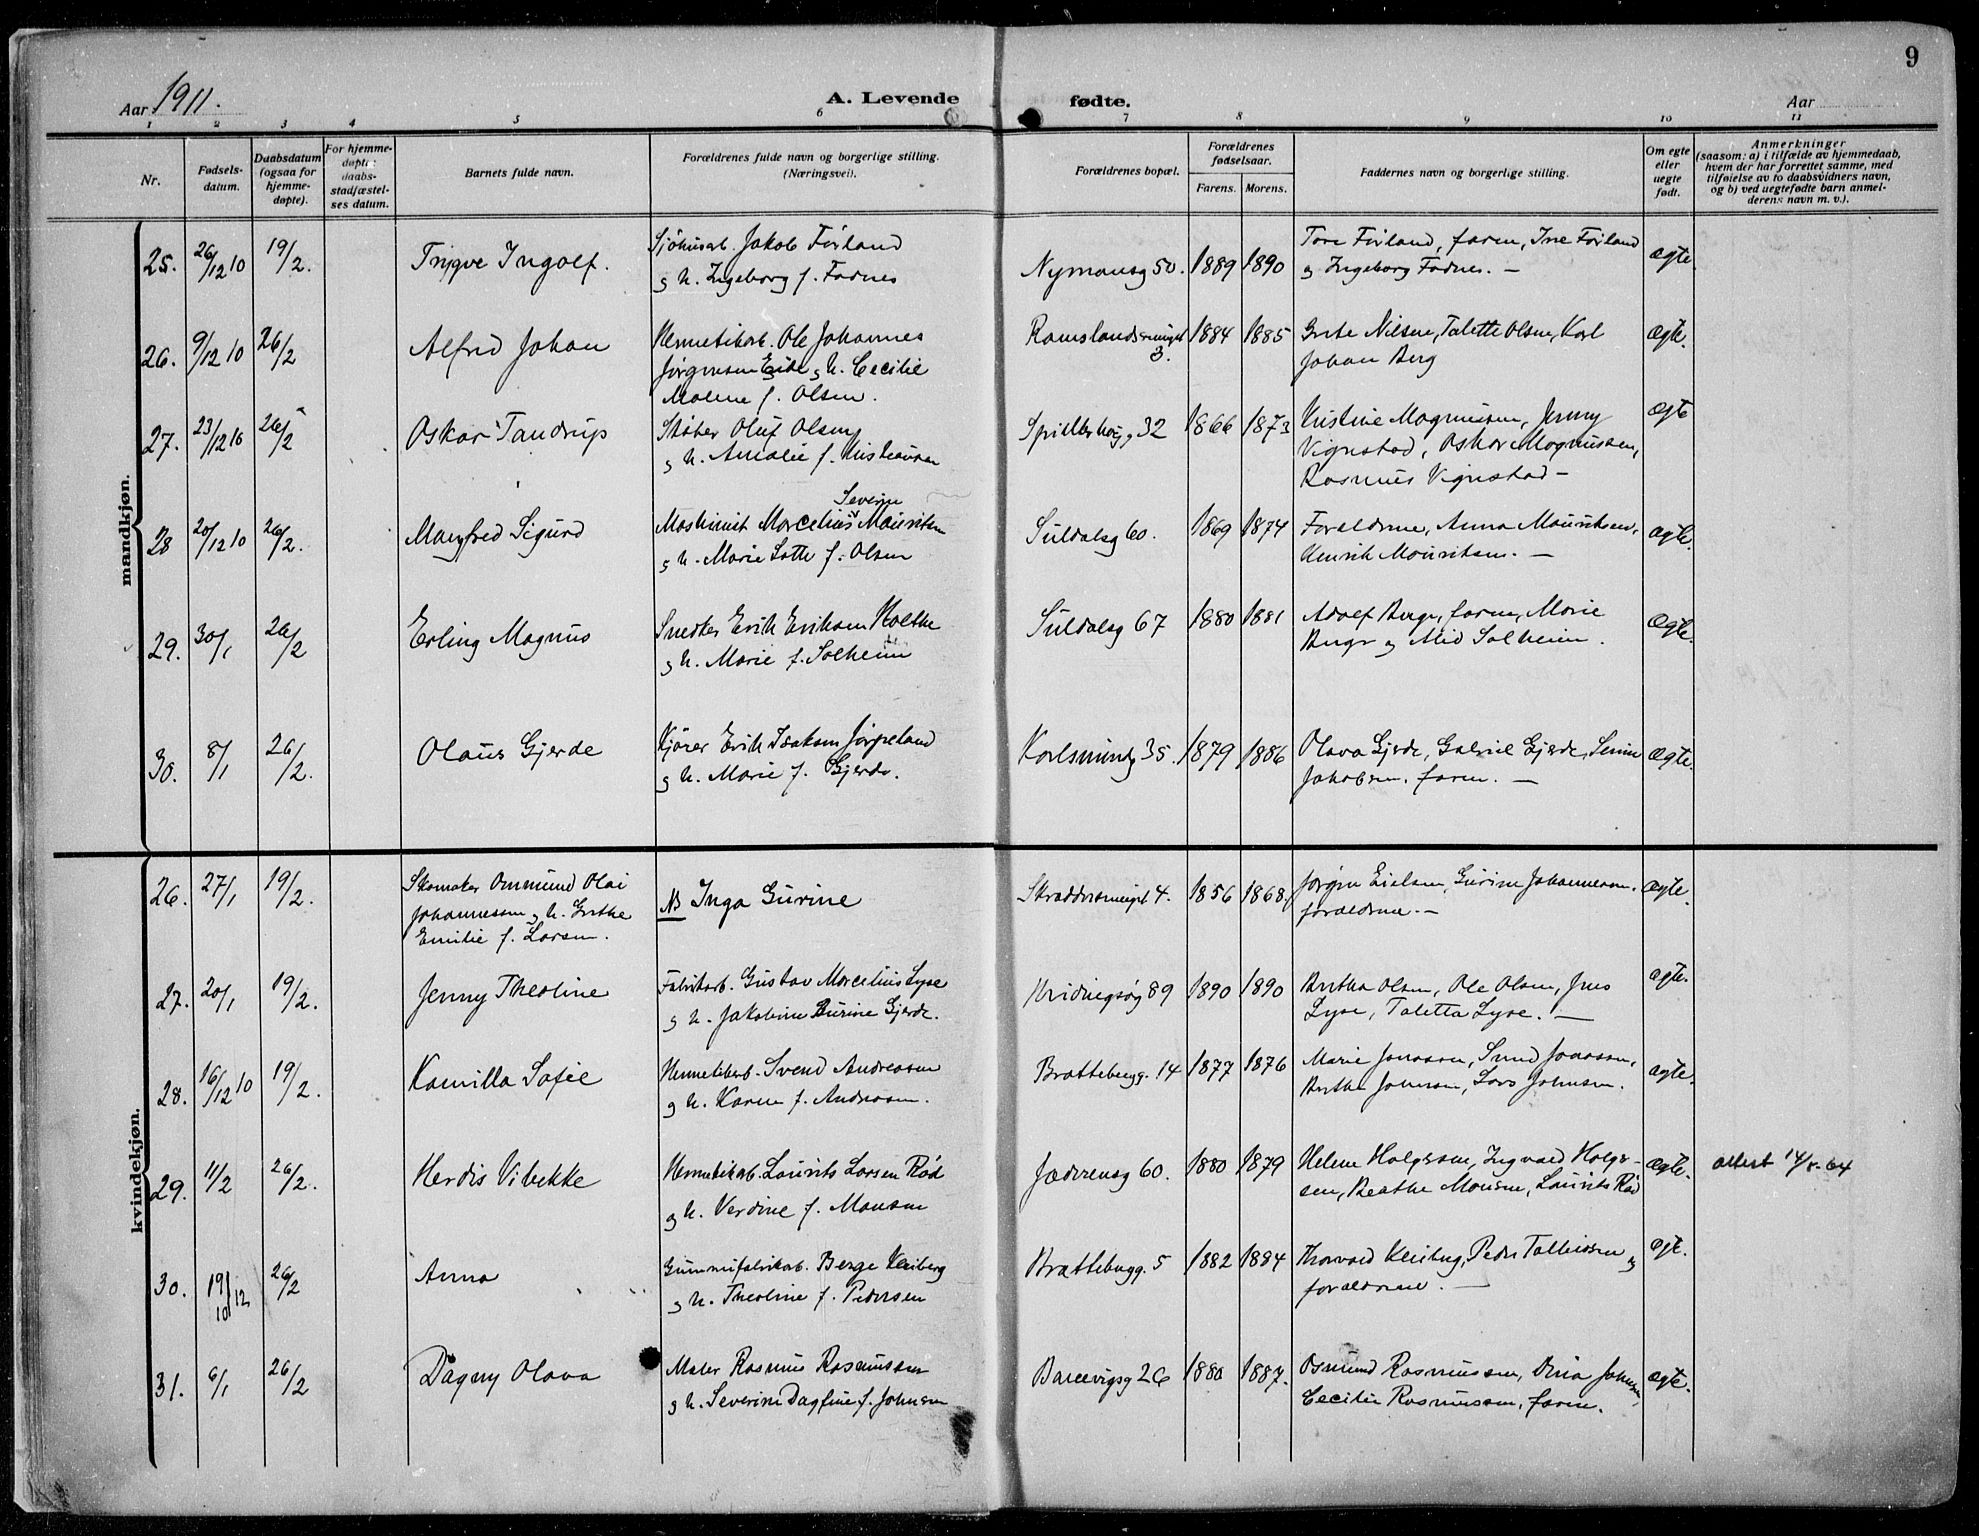 9
Aar 1911.
A. Levende fødte.
Aar
1 2 3 4 5 6 7 8 9 10 11
Nr.
Fødsels-
datum.
Daabsdatum
(ogsaa for
hjemme-
døpte).
For hjemme-
døpte:
daabs-
stadfæstel-
ses datum.
Barnets fulde navn.
Forældrenes fulde navn og borgerlige stilling.
(Næringsvei).
Forældrenes bopæl.
Forældrenes
fødselsaar.
Farens. Morens.
Faddernes navn og borgerlige stilling.
Om egte
eller
uegte
født.
Anmerkninger
(saasom: a) i tilfælde av hjemmedaab,
hvem der har forrettet samme, med
tilføielse av to daabsvidners navn,
og b) ved uegtefødte barn anmel-
derens navn m. v.).
mandkjøn.
25. 26/12 10 19/2. Trygve Ingolf.
Sjøhusarb. Jakob Førland
g h. Ingeborg f. Fadnes
Nymansg 50. 1889 1890
Tore Førland, faren, Ine Førland
og Ingeborg Fadnes. —
ægte
26. 9/12 10 26/2 Alfred Johan
Hermetikarb. Ole Johannes
Jørgensen Eide g h. Cecilie
Malene f. Olsen.
Ramslandssmuget
3.
1884 1885
Grete Nilsen, Talette Olsen, Karl
Johan Berg
ægte.
27. 23/12 10 26/2 Oskar Tandrup
Støber Oluf Olsen
g h. Amalie f. Kristiansen
Spilderhaugg 32 1866 1873
Kristine Magnussen, Jenny
Vignestad, Oskar Magnussen,
Rasmus Vignestad —
ægte
28 20/12 10 26/2. Manfred Sigurd
Severin
Maskinist Marcelius Mauritsen
g h. Marie Lotte f. Olsen
Suldalsg 60. 1869 1874
Forældrene, Anna Mauritsen,
Henrik Mauritsen. —
ægte.
29. 30/1 26/2 Erling Magnus
Snedker Erik Eriksen Holthe
g h. Marie f. Solheim
Suldalsg 67 1880 1881
Adolf Berge, faren, Marie
Berge og Mid Solheim.
Ægte.
30. 8/1 26/2. Olaus Gjerde
Kjører Erik Isaksen Jørpeland
g h. Marie f. Gjerde.
Karlsmindeg 35. 1879 1886
Olava Gjerde, Gabriel Gjerde, Serine
Jakobsen, faren. —
Ægte.
kvindekjøn.
26. 27/1 19/2.
Skomaker Ommund Olai
Johannessen g h. Grethe
Emilie f. Larsen.
NB Inga Gurine
Skræddersmuget 4. 1856 1868.
Jørgen Eielsen, Gurine Johannessen,
forældrene. —
ægte.
27. 20/1 19/2. Jenny Theoline
Fabrikarb. Gustav Marcelius Lyse
g h. Jakobine Gurine Gjerde.
Hvidingsøg 89 1890 1890
Bertha Olsen, Ole Olsen, Jens
Lyse, Taletta Lyse. —
ægte.
28. 16/12 10 19/2. Kamilla Sofie
Hermetikarb. Svend Andreasen
g h. Karen f. Andreasen.
Brattebergg. 14 1877 1876
Marie Jonassen, Svend Jonassen,
Berthe Johnsen, Lars Johnsen.
ægte.
29. 11/2 26/2. Herdis Vibekke
Hermetikarb. Laurits Larsen Rød
g h. Verdine f. Monsen
Jæderensg 60. 1880 1879
Helene Holgersen, Ingvald Holger-
sen, Beathe Monsen, Laurits Rød
ægte.
attest 14/8-64
30. 19/12 10 26/2 Anna
Gummifabrikarb. Berge Kleiberg
g h. Theoline f. Pedersen
Brattebergg. 5 1882 1884
Thorvald Kleiberg, Peder Tallaksen og
forældrene. —
ægte.
31. 6/1 26/2 Dagny Olava
Maler Rasmus Rasmussen
g h. Severine Dagfine f. Johnsen
Banevigsg 26 1880 1887.
Osmund Rasmussen, Dina Johnsen,
Cecilie Rasmussen, faren.
ægte.